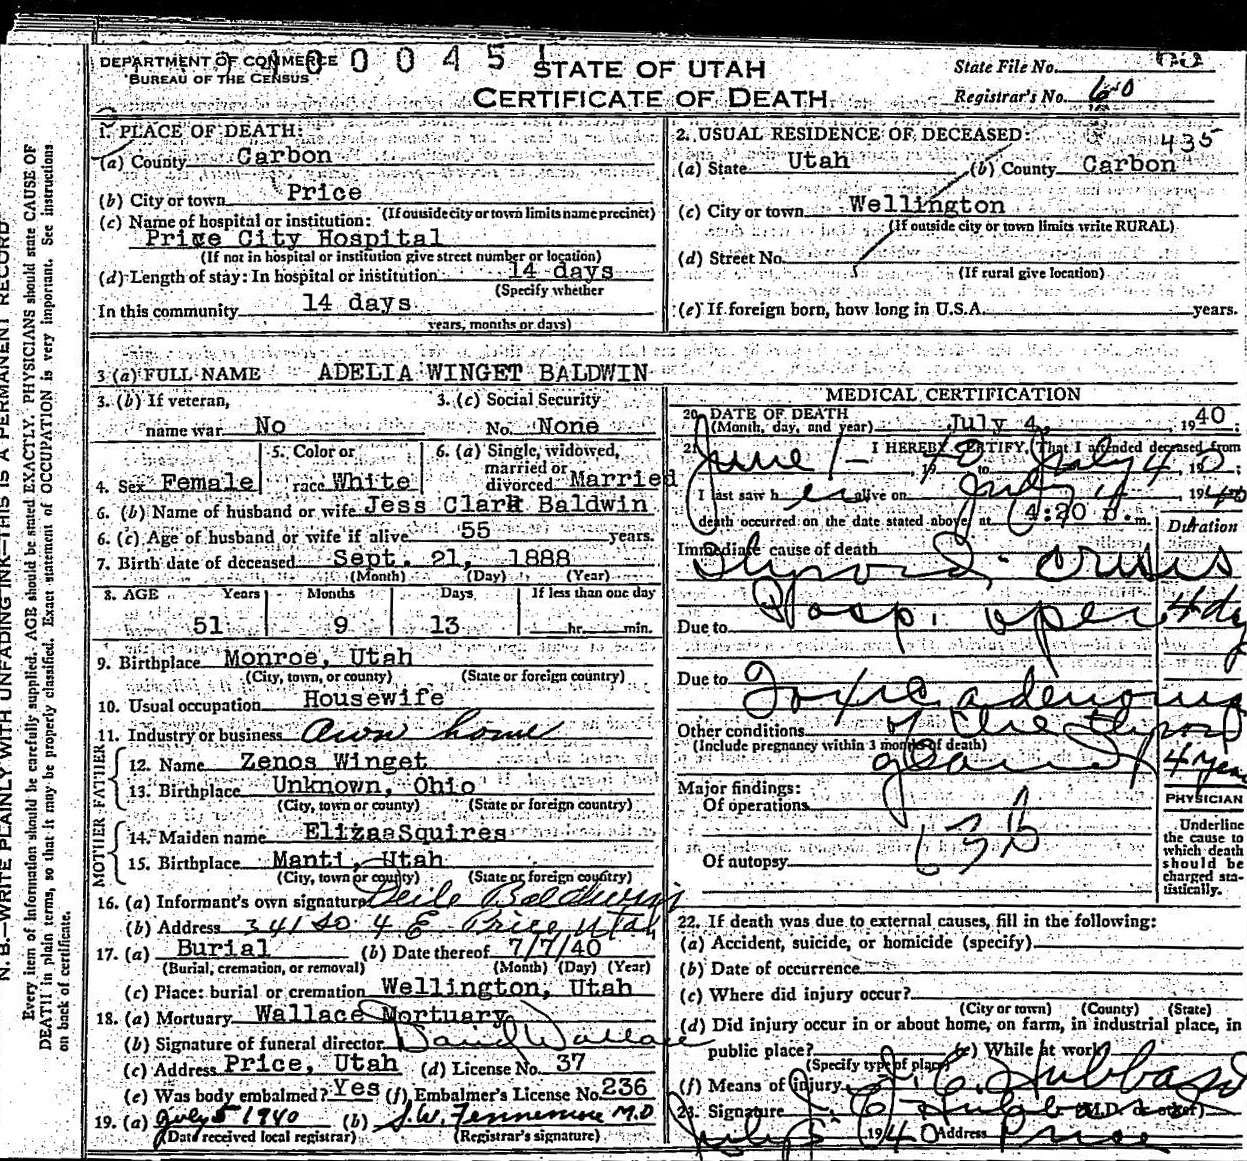 DEPARTMENT OF COMMERCE
BUREAU OF THE CENSUS
0 0 0 4 5 1
STATE OF UTAH
CERTIFICATE OF DEATH
State File No.
Registrar's No. 60
1. PLACE OF DEATH:
(a) County Carbon
(b) City or town Price
(If outside city or town limits name precinct)
(c) Name of hospital or institution:
Price City Hospital
(If not in hospital or institution give street number or location)
(d) Length of stay: In hospital or institution 14 days
(Specify whether
In this community 14 days
years, months or days)
2. USUAL RESIDENCE OF DECEASED:
435
(a) State Utah (b) County Carbon
(c) City or town Wellington
(If outside city or town limits write RURAL)
(d) Street No.
(If rural give location)
(e) If foreign born, how long in U.S.A. years.
3 (a) FULL NAME ADELIA WINGET BALDWIN
3. (b) If veteran, 3. (c) Social Security
name war No No. None
5. Color or 6. (a) Single, widowed,
married or
4. Sex Female race White divorced Married
6. (b) Name of husband or wife Jess Clark Baldwin
6. (c) Age of husband or wife if alive 55 years.
7. Birth date of deceased Sept. 21, 1888
(Month) (Day) (Year)
8. AGE Years Months Days If less than one day
51 9 13 hr. min.
9. Birthplace Monroe, Utah
(City, town, or county) (State or foreign country)
10. Usual occupation Housewife
11. Industry or business own home
FATHER
12. Name Zenos Winget
13. Birthplace Unknown, Ohio
(City, town or county) (State or foreign country)
MOTHER
14. Maiden name Eliza Squires
15. Birthplace Manti, Utah
(City, town or county) (State or foreign country)
16. (a) Informant's own signature Baldwin
(b) Address 341 So 4 E Price, Utah
17. (a) Burial (b) Date thereof 7/7/40
(Burial, cremation, or removal) (Month) (Day) (Year)
(c) Place: burial or cremation Wellington, Utah
18. (a) Mortuary Wallace Mortuary
(b) Signature of funeral director David Wallace
(c) Address Price, Utah (d) License No. 37
(e) Was body embalmed? Yes (f) Embalmer's License No. 236
19. (a) July 5 1940 (b) S.W. Fennemore M.D
(Date received local registrar) (Registrar's signature)
MEDICAL CERTIFICATION
20. DATE OF DEATH
(Month, day, and year) July 4, 1940;
21. I HEREBY CERTIFY, That I attended deceased from
June 1- , 1940 to July 4 , 1940;
I last saw h er alive on July 4 , 1940
death occurred on the date stated above, at 4:20 p.m.
Duration
Immediate cause of death
Thyroid crisis
Due to Posp. oper 4 dy
Due to Toxic adenoma
Other conditions of the thyroid
(Include pregnancy within 3 months of death)
gland 4 year
Major findings:
Of operations
Of autopsy
PHYSICIAN
Underline
the cause to
which death
should be
charged sta-
tistically.
22. If death was due to external causes, fill in the following:
(a) Accident, suicide, or homicide (specify)
(b) Date of occurrence
(c) Where did injury occur?
(City or town) (County) (State)
(d) Did injury occur in or about home, on farm, in industrial place, in
public place? (e) While at work
(Specify type of place)
(f) Means of injury J. C. Hubbard
23. Signature J. C. Hubbard (M.D. or other)
July 5 1940 Address Price
N. B.—WRITE PLAINLY WITH UNFADING INK—THIS IS A PERMANENT RECORD
Every item of information should be carefully supplied. AGE should be stated EXACTLY. PHYSICIANS should state CAUSE OF
DEATH in plain terms, so that it may be properly classified. Exact statement of OCCUPATION is very important. See instructions
on back of certificate.